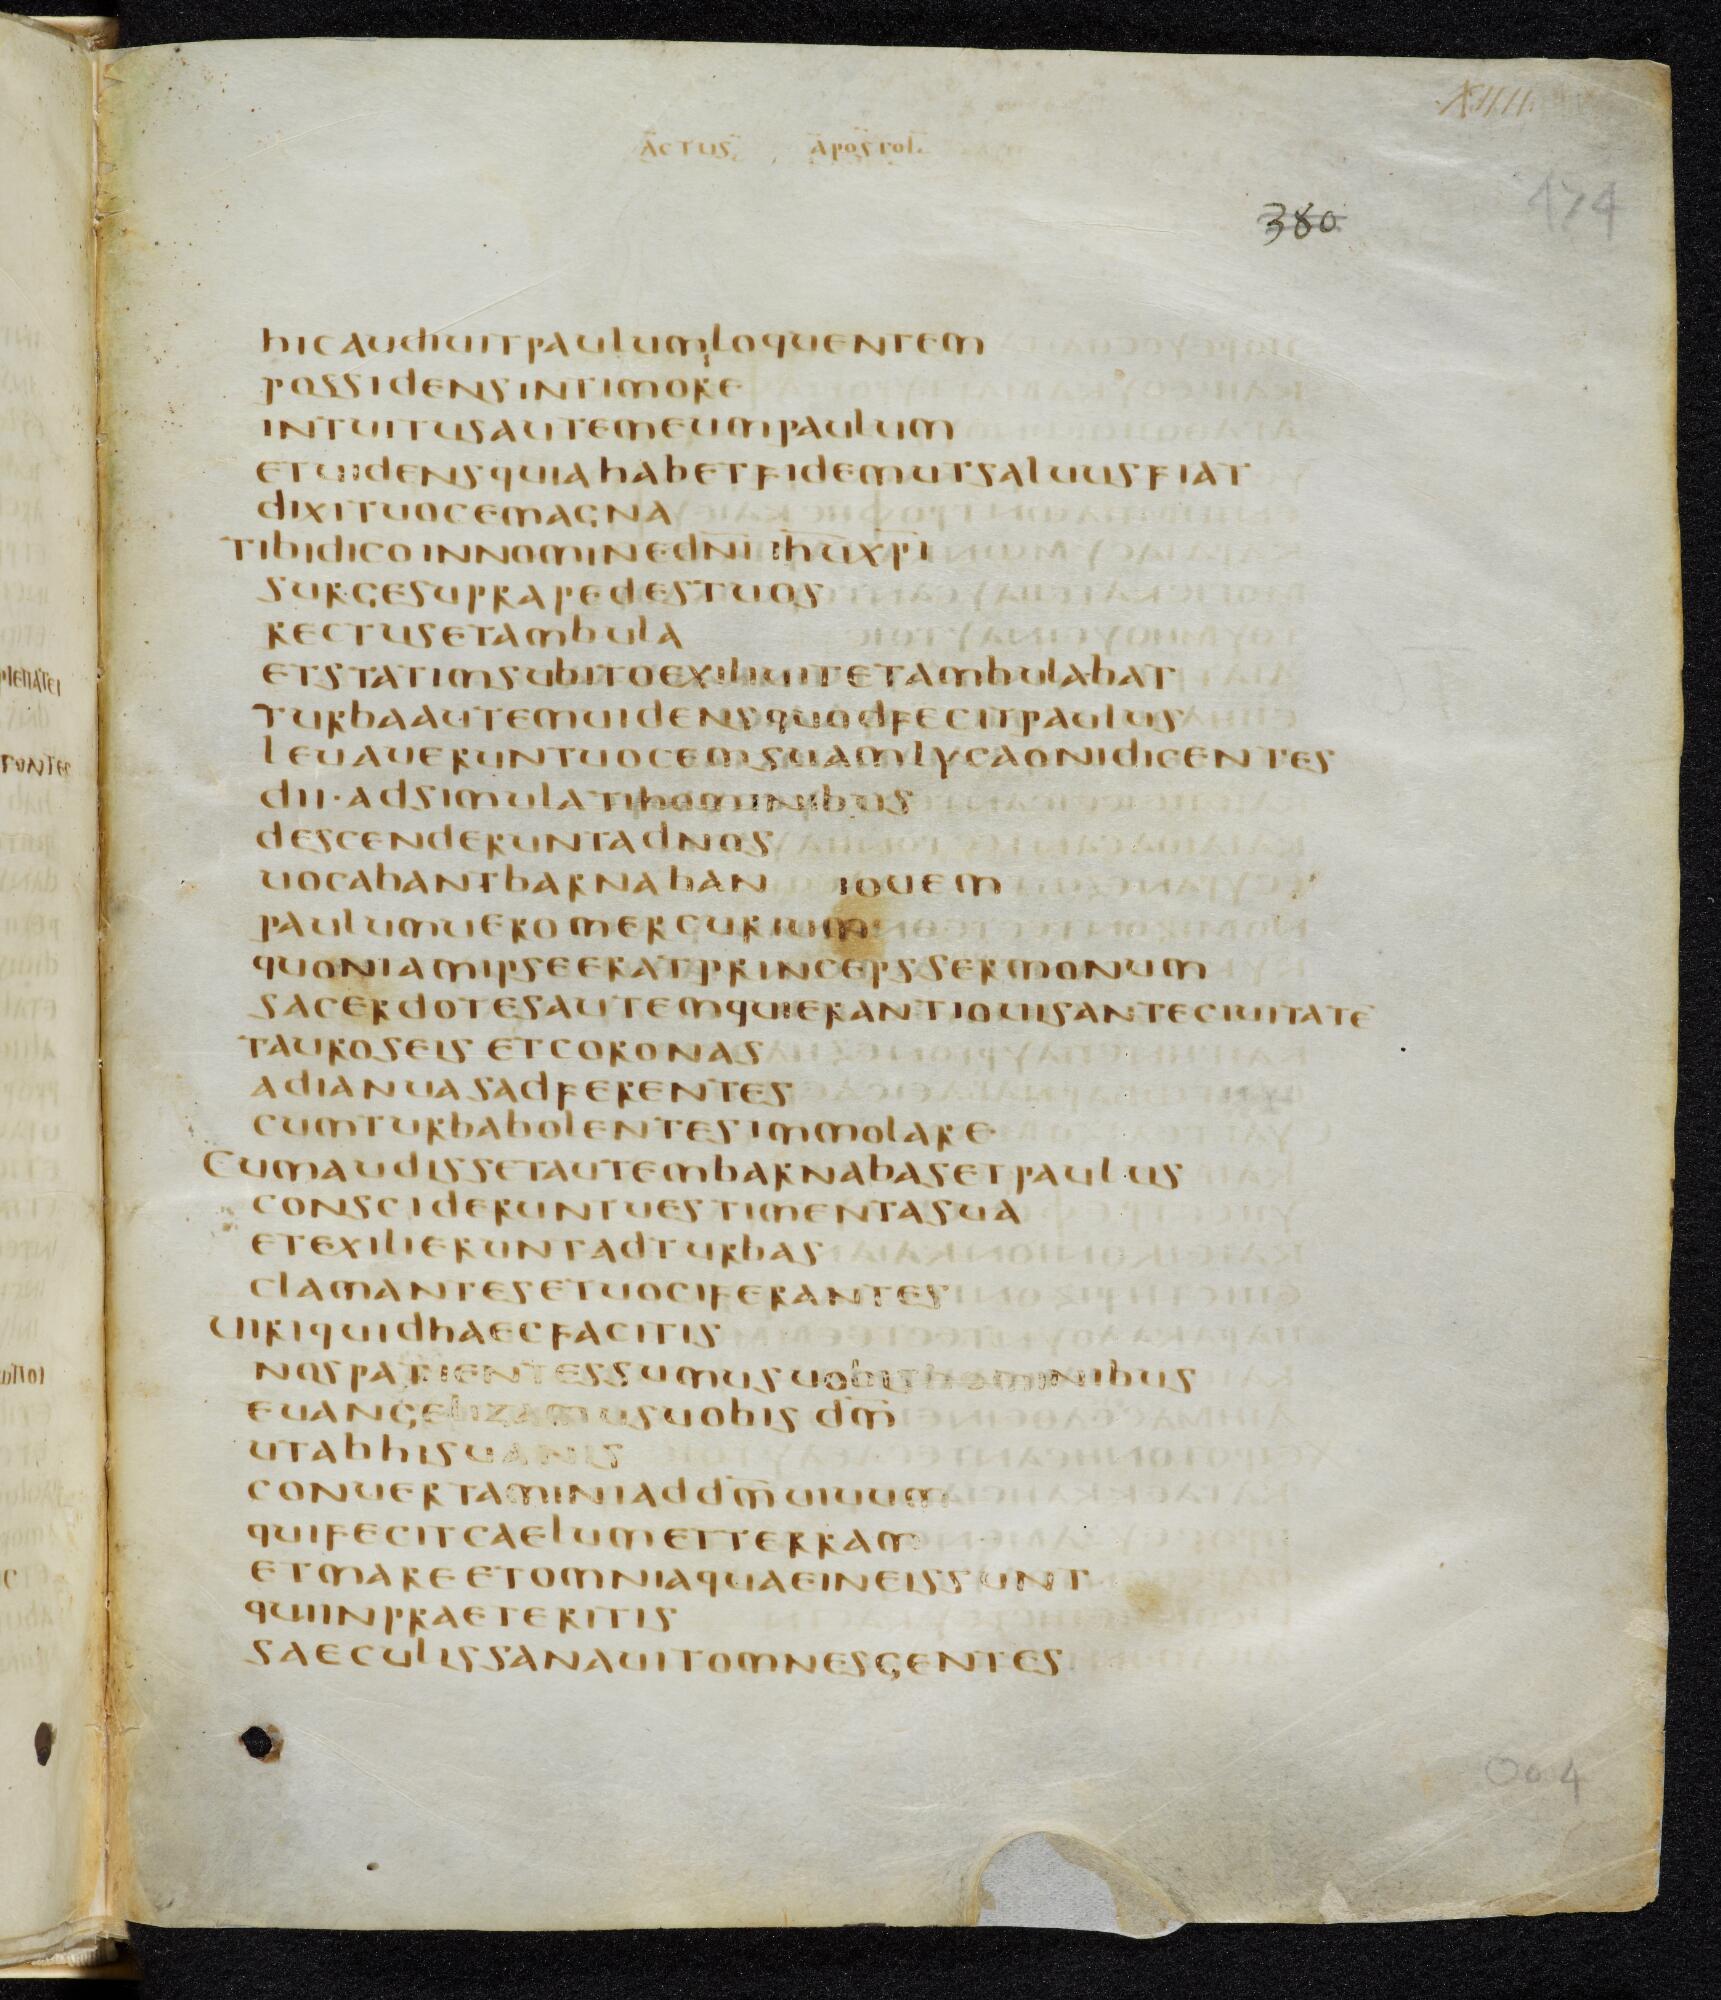 XIIII
ACTUS APOSTOL
474
380
hicaudiuitpaulumloquentem
possidensintimore
intuitusautemeumpaulum
etuidensquiahabetfidemutsaluusfiat
dixituocemagna
tibidicoinnominedn̄iih̄ux̄pi
surgesuprapedestuos
rectusetambula
etstatimsubitoexiliuitetambulabat
turbaautemuidensquodfecitpaulus
leuaueruntuocemsuamlycaonidicentes
dii·adsimulatihominibus
descenderuntadnos
uocabantbarnaban iouem
paulumueromercurium
quoniamipseeratprincepssermonum
sacerdotesautemquierantiouisanteciuitate
tauroseis etcoronas
adianuasadferentes
cumturbabolentesimmolare
Cumaudissetautembarnabasetpaulus
conscideruntuestimentasua
etexilieruntadturbas
clamantesetuociferantes
uiriquidhaecfacitis
nospatientessumusuobishominibus
euangelizamusuobis dm̄
utabhisuanis
conuertaminiaddm̄uiuum
quifecitcaelumetterram
etmareetomniaquaeineissunt
quiinpraeteritis
saeculissanauitomnesgentes
Oo 4